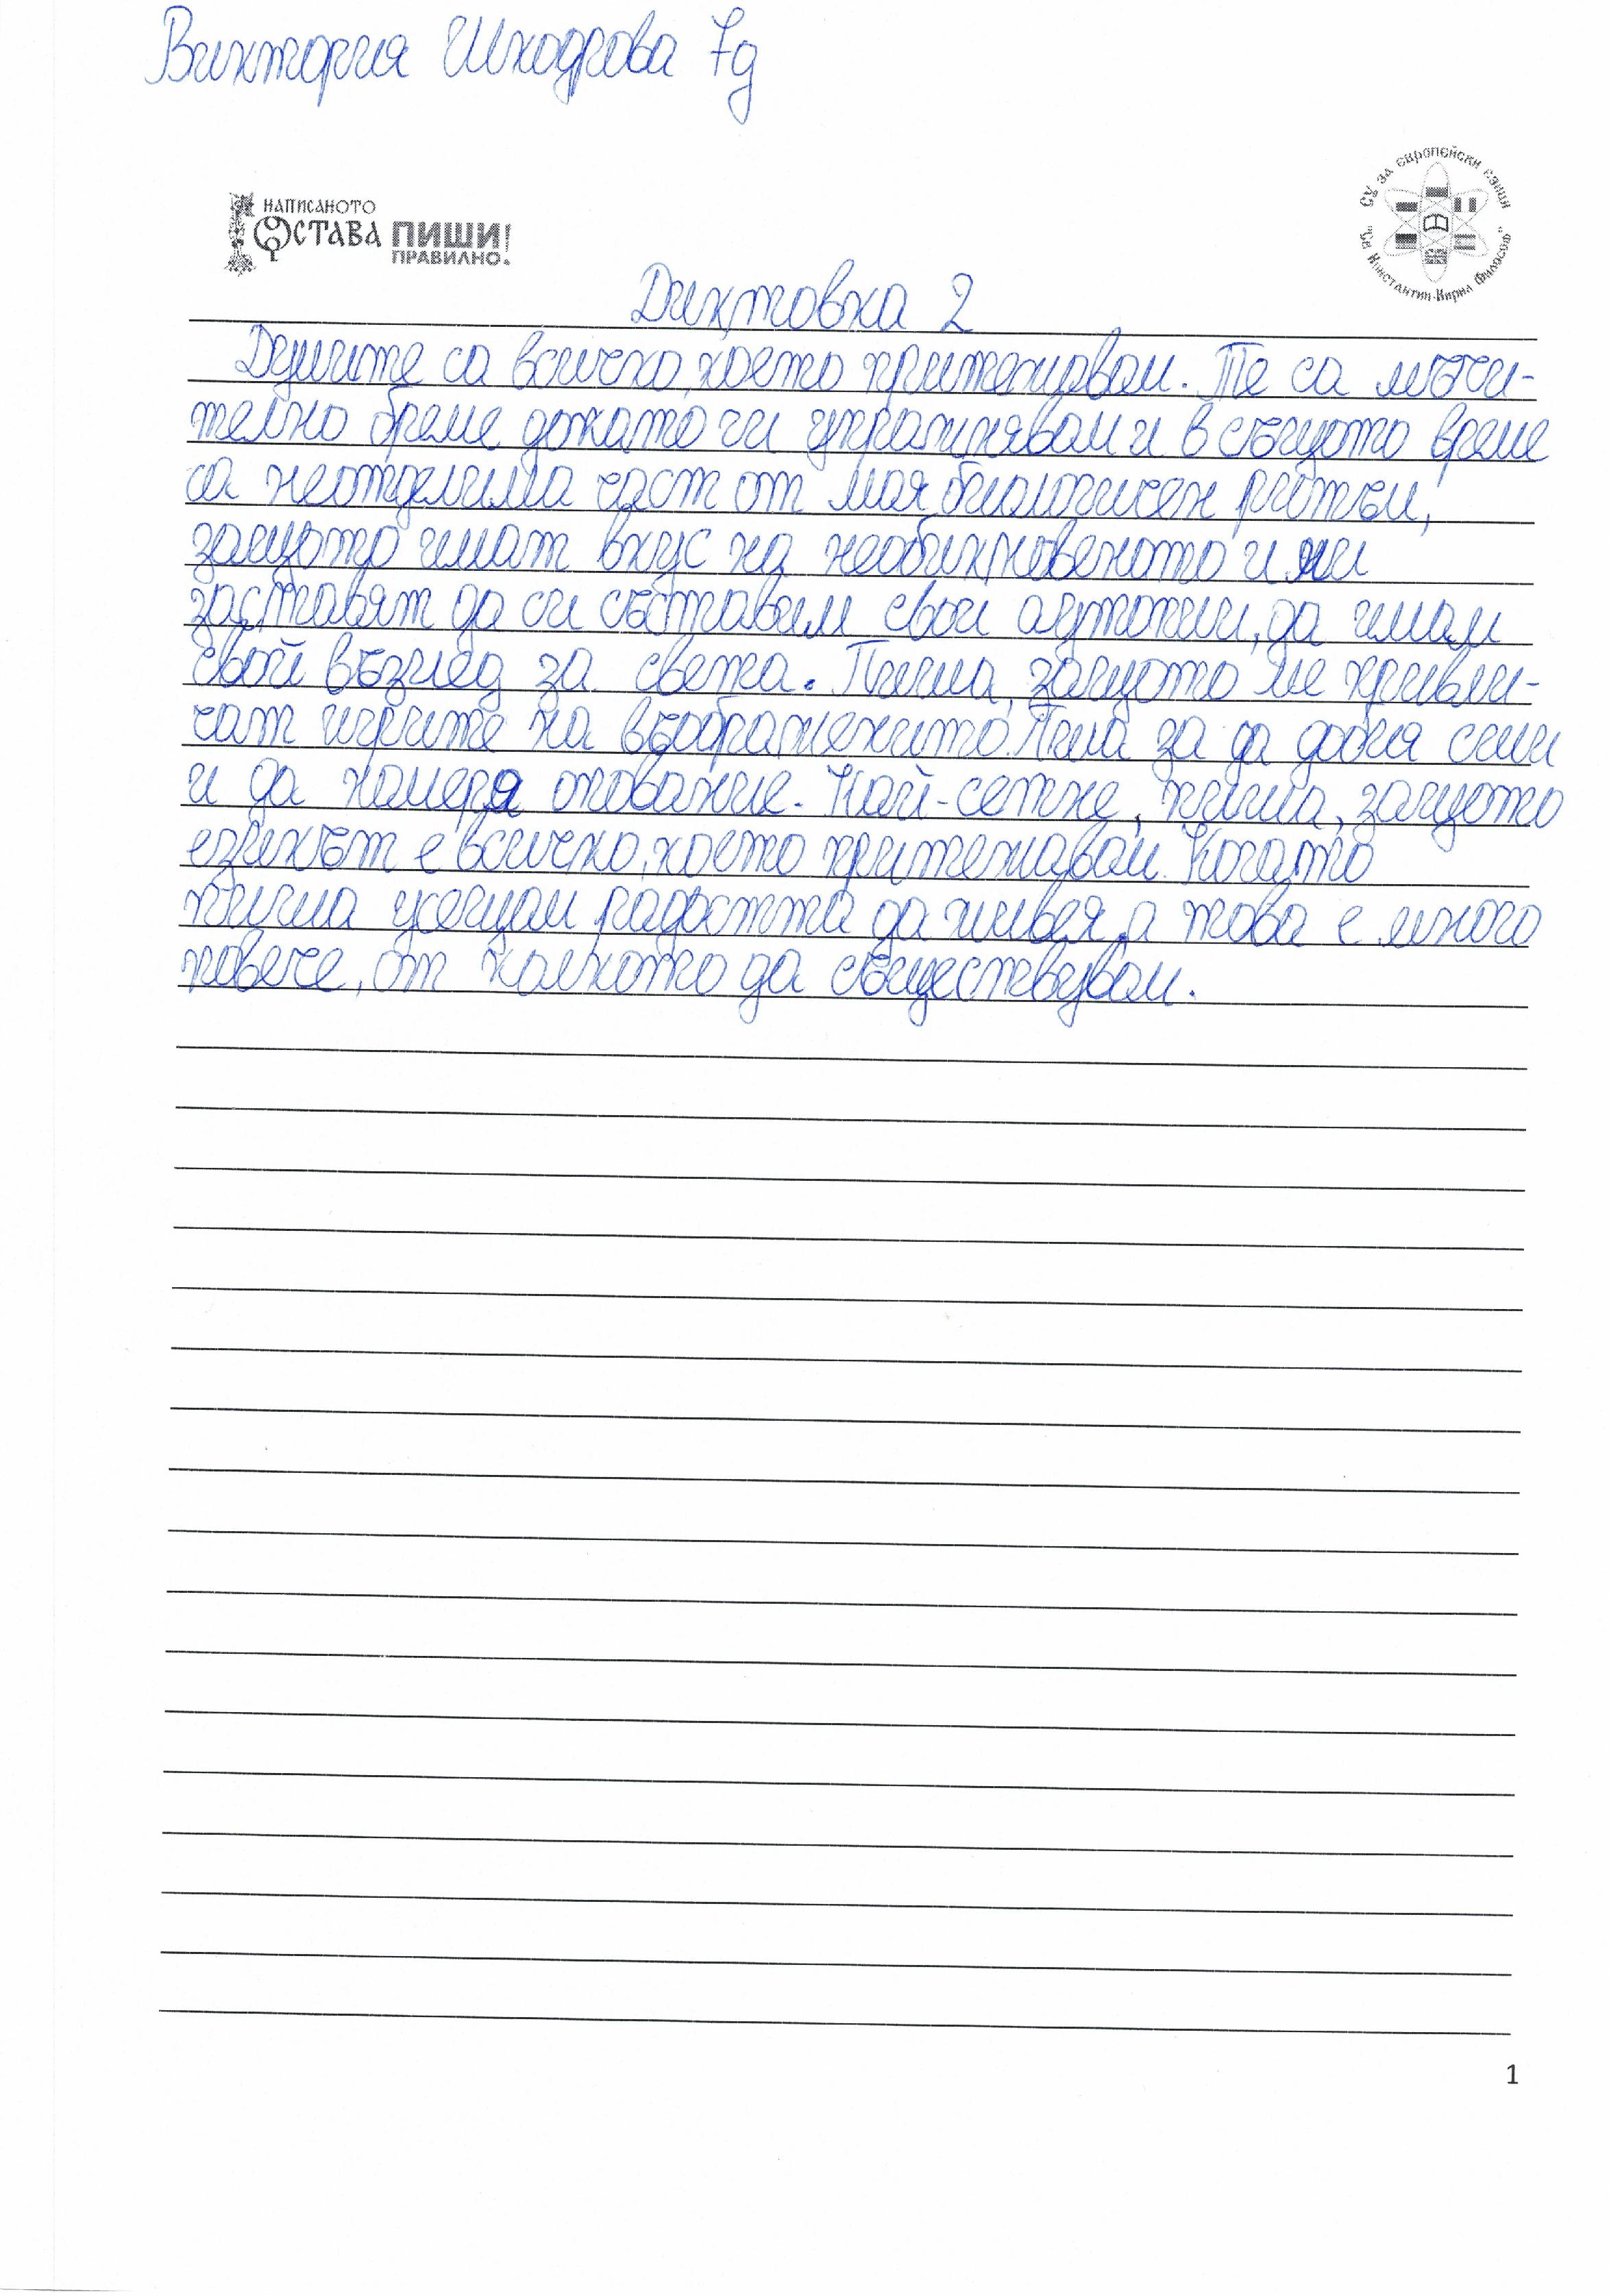 Виктория Шкодрова 7д
СУ за европейски езици
"Св. Константин-Кирил Философ"
НАПИСАНОТО
ОСТАВА ПИШИ
ПРАВИЛНО!
Диктовка 2
Думите са всичко, което притежавам. Те са мъчи-
телно бреме докато ги упражнявам и в същото време
са неотделима част от моя биологичен ритъм,
защото имат вкус на необикновеното и ми
заставят да си съставям свои аутопии, да имам
свой възглед за света. Пиша, защото ме привли-
чат игрите на въображението. Пиша за да добия сили
и да намеря опование. Най-сетне, пиша, защото
езикът е всичко, което притежавам. Когато
пиша усещам радостта да живея, а това е много
повече, от колкото да съществувам.
1